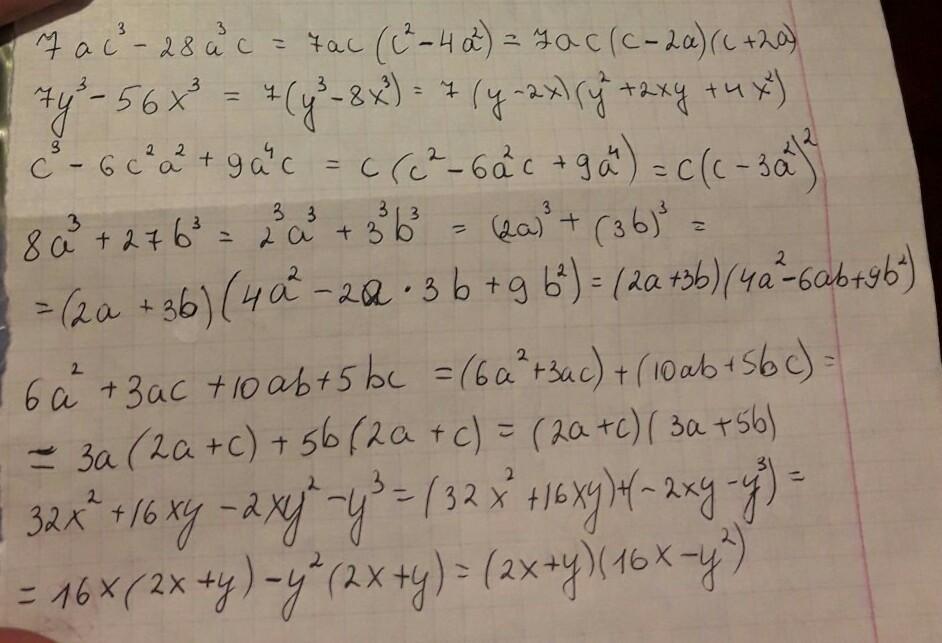 7ac³ - 28a³c = 7ac (c² - 4a²) = 7ac (c - 2a)(c + 2a)
7y³ - 56x³ = 7(y³ - 8x³) = 7 (y - 2x)(y² + 2xy + 4x²)
c³ - 6c²a² + 9a⁴c = c (c² - 6a²c + 9a⁴) = c(c - 3a²)²
8a³ + 27b³ = 2³a³ + 3³b³ = (2a)³ + (3b)³ =
= (2a + 3b)(4a² - 2a · 3b + 9b²) = (2a+3b)(4a² - 6ab + 9b²)
6a² + 3ac + 10ab + 5bc = (6a² + 3ac) + (10ab + 5bc) =
= 3a (2a + c) + 5b (2a + c) = (2a + c)(3a + 5b)
32x² + 16xy - 2xy² - y³ = (32x² + 16xy) + (- 2xy - y³) =
= 16x (2x + y) - y² (2x + y) = (2x + y)(16x - y²)